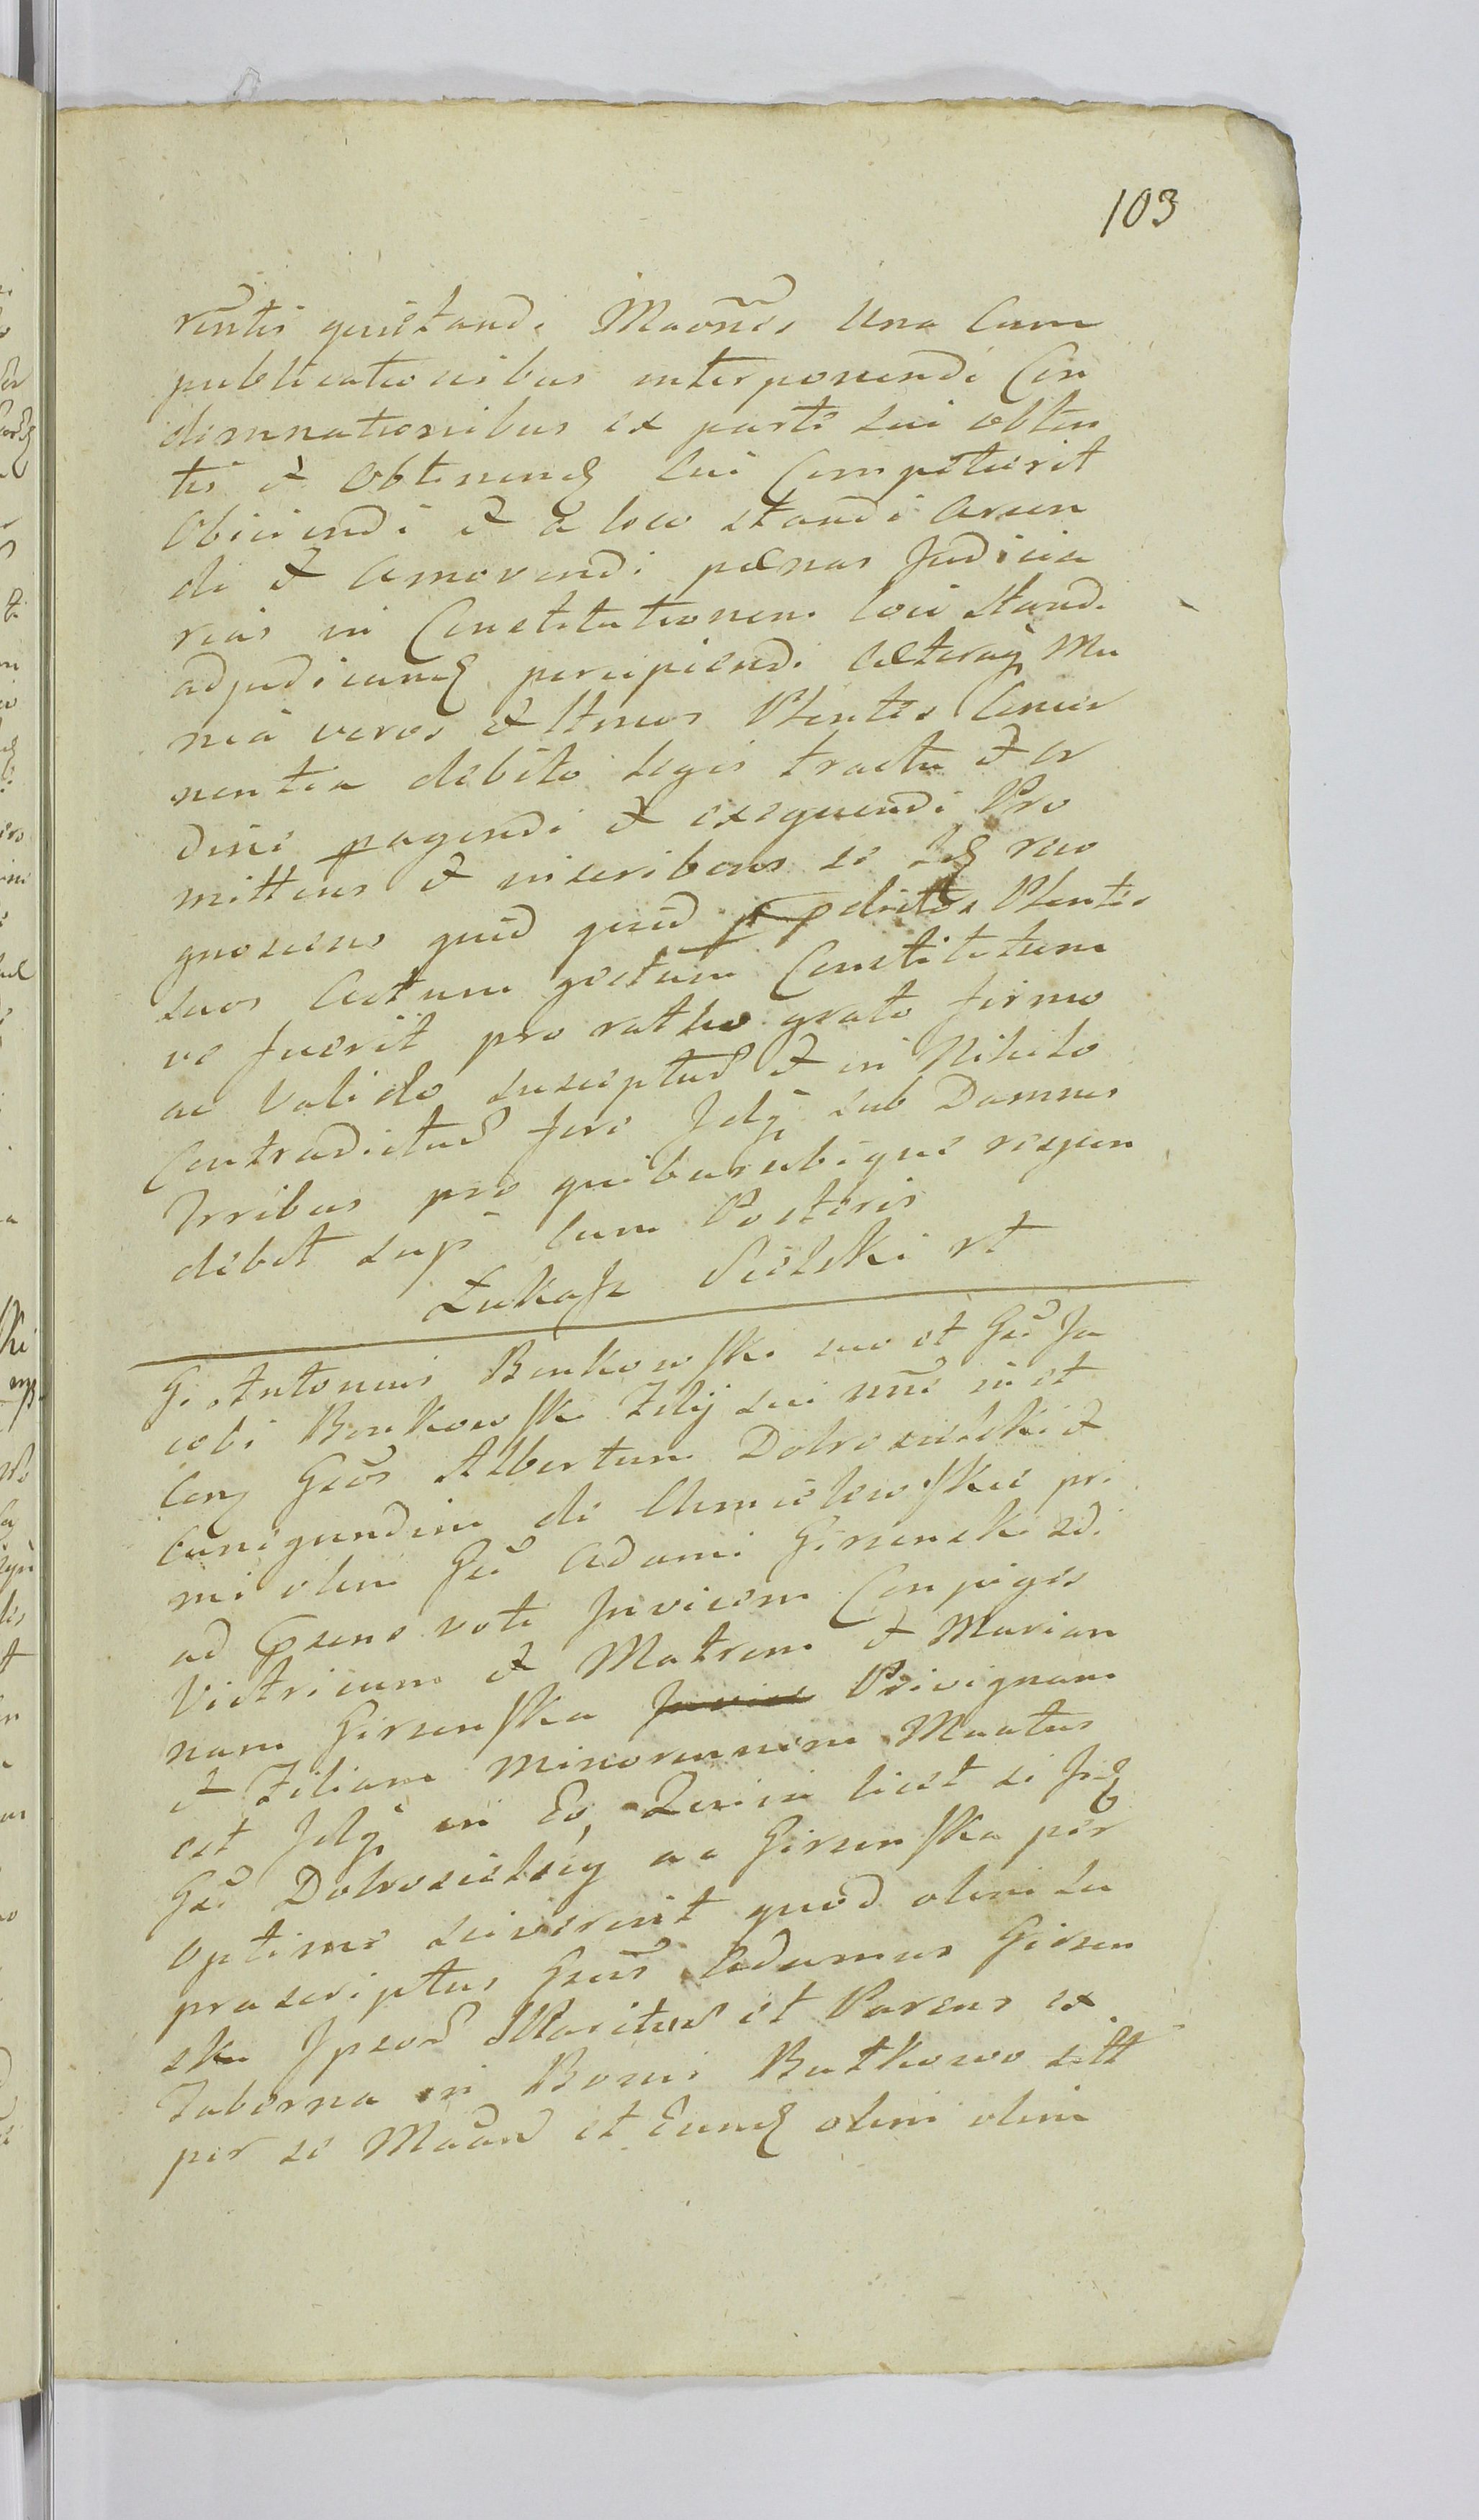 103
rentis quietandi Maones una Cum
publicationibus interponendi Con
demnationibus ex parte sui obten
tis et obtinend cui Competierit
Obiiciendi et a loco standi arcen
di et amovendi pœnas Judicia
rias in Constitutionem loci standi
adjudicand percipiendi cæteraq Mu
nia veros et lttmos Plentes Concer
nentia debito legis tractu et or
dine pagendi et exequendi Pro
mittens et inscribens se seq reco
gnoscens quid quid p pdictos Plentes
suos Actum gestum Constitutum
ve fuerit pro ratho grato firmo
ac Valido suscepturũ et in Nihilo
Contradicturũ fore Idq sub Damnis
Trribus pro quibus ubique respon
debit sup cum Posteris
Łukasz Sielski rt
G. Antonius Bonkowski suo et Gsi Ja
cobi Bonkowski Filij sui nne in et
Con Gsos Albertum Dobrosielski et
Cunegundim de Chmielewskie pri
mi olim Gsi Adami Girzenski sdi
ad psens voti Invicem Conjuges
Vitricum et Matrem et Marian
nam Girzenska Privignam
et Filiam Minorennem Maatus
est Idq in Eo, Quia licet ii Jid
Gsi Dobrosielscy ac Girzenska per
optime sciverint quod olim su
prascriptus Gsus Adamus Girzen
ski Ipsorũ Maritus et Parens ex
Taberna in Bonis Butkowo sitt
per se Maand et Eund olim olim